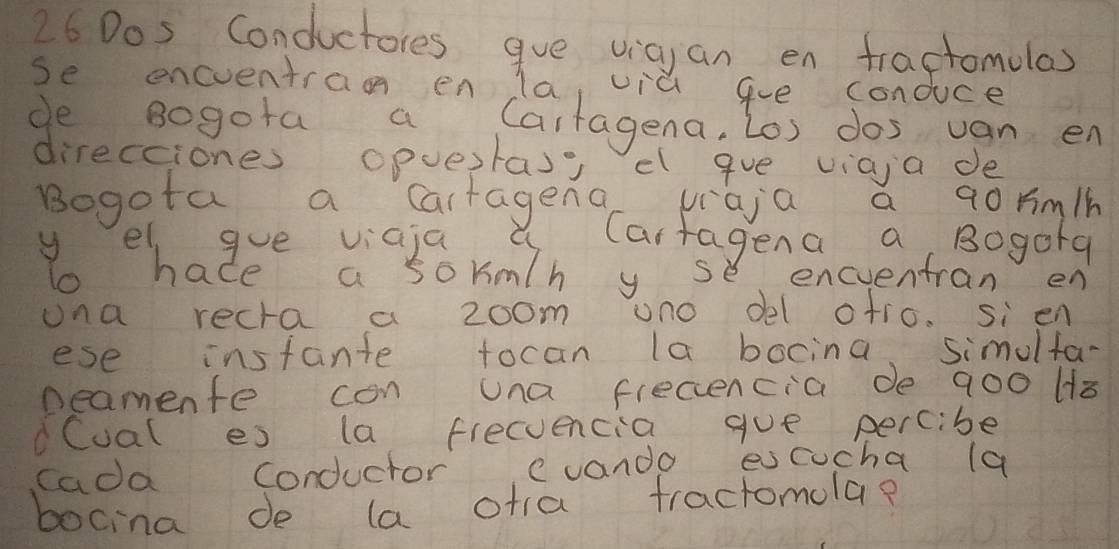 26 Dos Conductores que viajan en tractomulas
se encuentran en la via que conduce
de Bogota a Cartagena. Los dos van en
direcciones opuestas; el que viaja de
Bogota a Cartagena viaja a 90 Km/h
y el que viaja a Cartagena a Bogota
lo hace a 50 Km/h y se encuentran en
una recta a 200m uno del otro. si en
ese instante tocan la bocina simulta-
neamente con una frecuencia de 900 Hz
¿Cual es la frecuencia que percibe
cada conductor cuando escucha la
bocina de la otra tractomula?